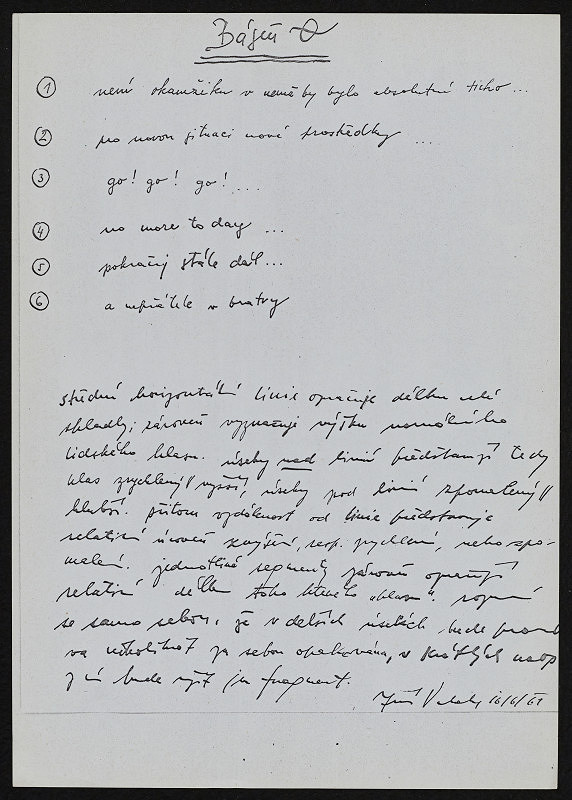 Báseň
1 není okamžiku v němž by bylo absolutní ticho ...
2 na novou situaci nové prostředky ...
3 go! go! go! ...
4 no more today ...
5 pokračuj stále dál ...
6 a nepřátele v bratry
střední horizontální linie označuje délku celé
skladby; zároveň vyznačuje výšku normálního
lidského hlasu. úseky nad linií představují tedy
hlas zrychlený // vyšší, úseky pod linií zpomalený //
hlubší. přitom vzdálenost od linie představuje
relativní úroveň zvýšení, resp. zrychlení, nebo zpo-
malení. jednotlivé segmenty zároveň označují
relativní délku toho kterého "hlasu". rozumí
se samo sebou, že v delších úsecích bude
několikrát za sebou opakována, v krátkých naop
z ní bude užit jen fragment.
Jiří 16/6/61